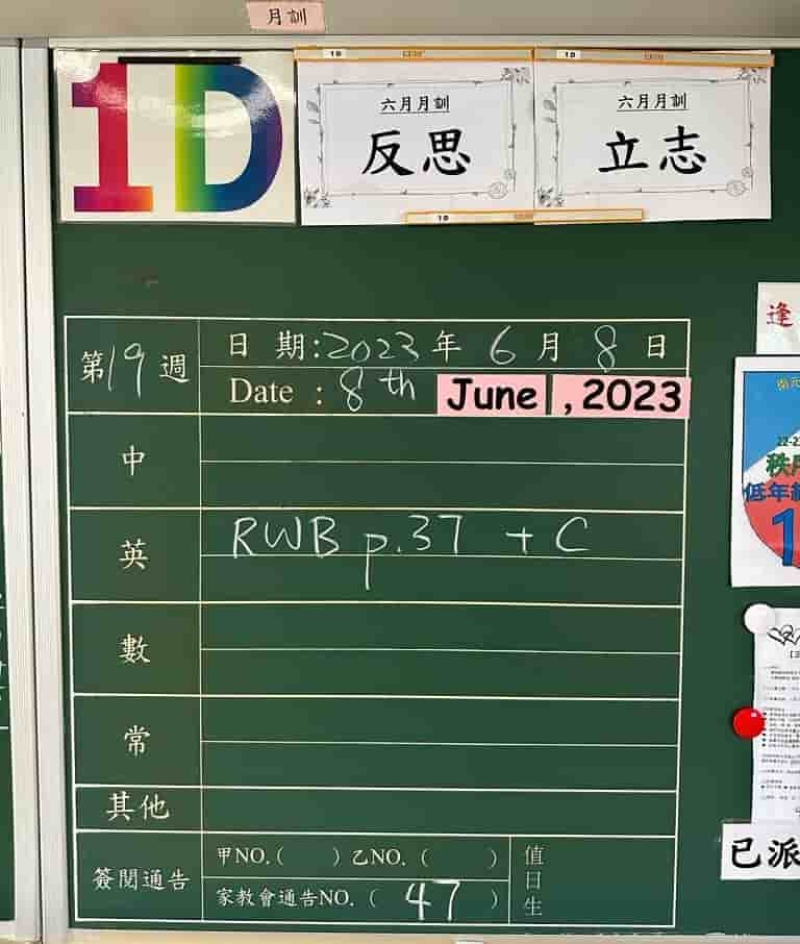 月訓
1D
六月月訓
反思
六月月訓
立志
逢
第19週
日 期:2023年 6 月 8 日
Date : 8th June , 2023
中
英 RWB p.37 + C
數
常
其他
簽閱通告
甲NO.( ) 乙NO. ( )
家教會通告NO. ( 47 )
值日生
低年
已派